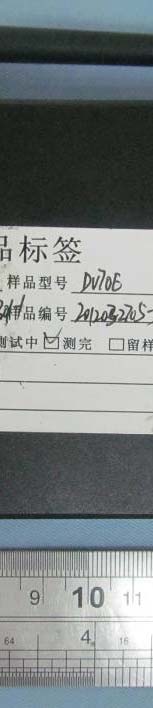 品标签
样品型号 DV70E
样品编号
测试中 ☑测完 □留样
9 10 11
64 4 16